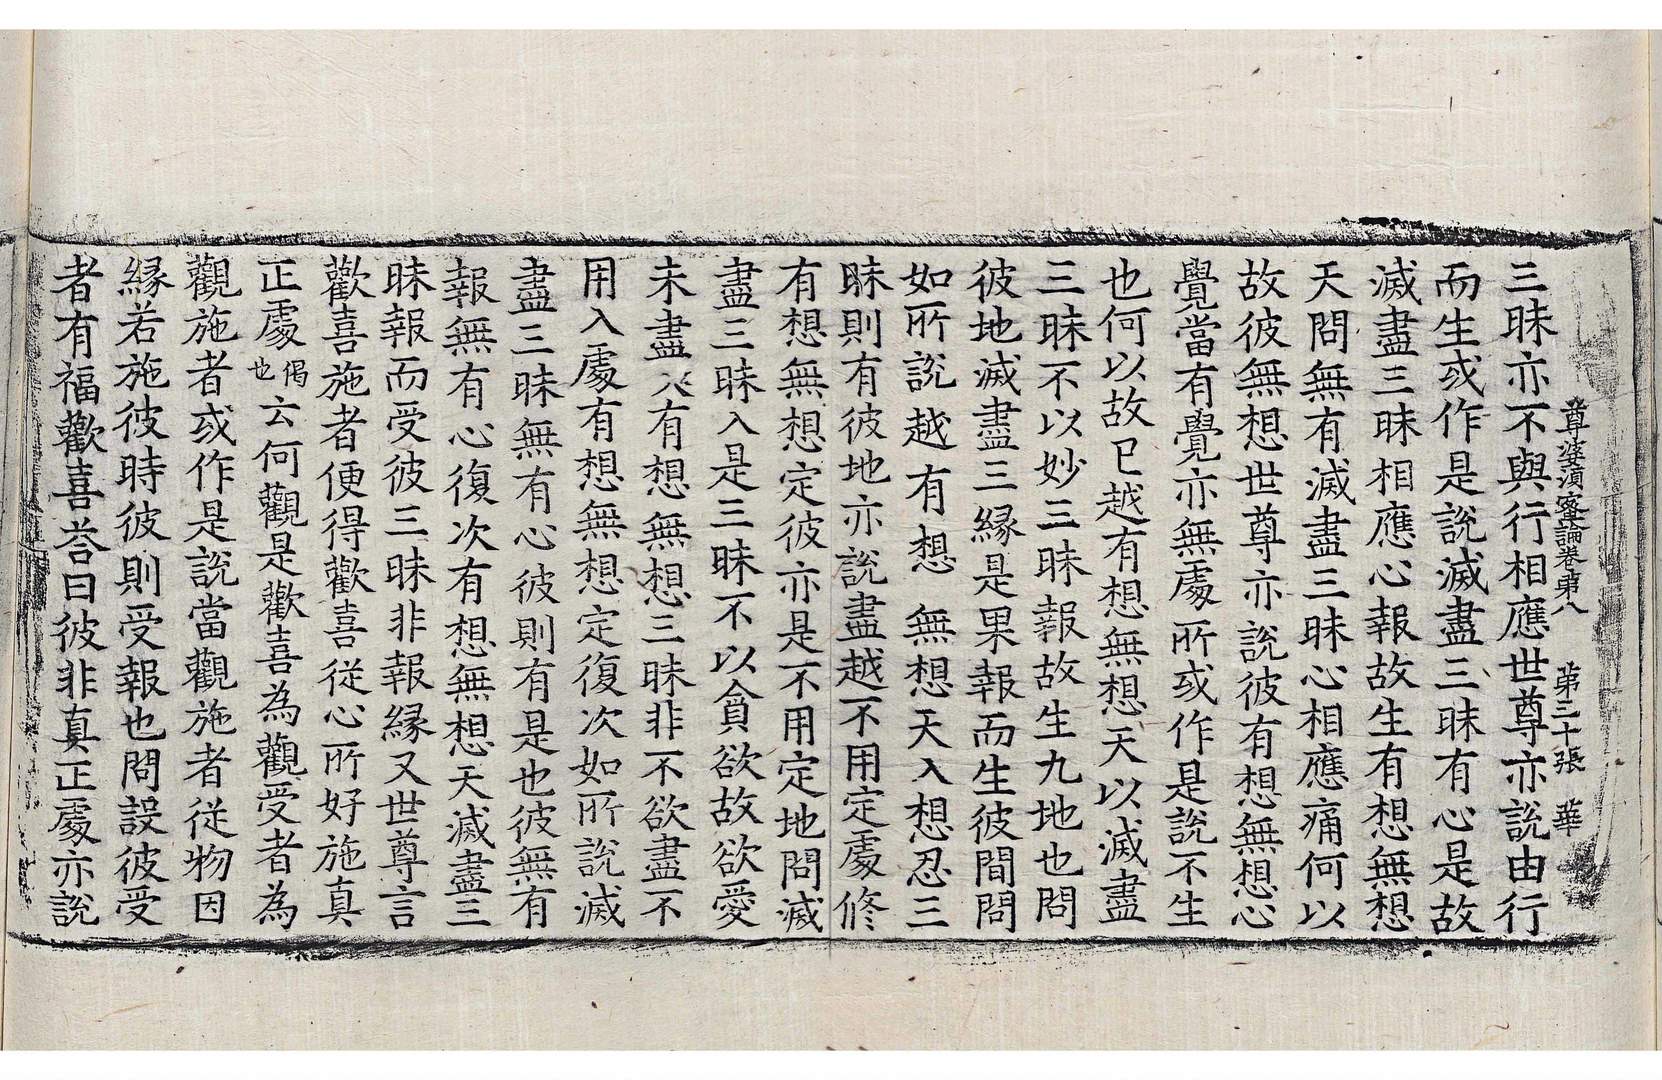 尊婆須蜜論卷第八　第三十張　華
三昧亦不與行相應世尊亦說由行
而生或作是說滅盡三昧有心是故
滅盡三昧相應心報故生有想無想
天問無有滅盡三昧心相應痛何以
故彼無想世尊亦說彼有想無想心
覺當有覺亦無處所或作是說不生
也何以故已越有想無想天以滅盡
三昧不以妙三昧報故生九地也問
彼地滅盡三緣是果報而生彼間問
如所說越有想無想天入想忍三
昧則有彼地亦說盡越不用定處修
有想無想定彼亦是不用定地問滅
盡三昧入是三昧不以貪欲故欲愛
未盡入有想無想三昧非不欲盡不
用入處有想無想定復次如所說滅
盡三昧無有心彼則有是也彼無有
報無有心復次有想無想天滅盡三
昧報而受彼三昧非報緣又世尊言
歡喜施者便得歡喜從心所好施真
正處偈也云何觀是歡喜為觀受者為
觀施者或作是說當觀施者從物因
緣若施彼時彼則受報也問設彼受
者有福歡喜答曰彼非真正處亦說